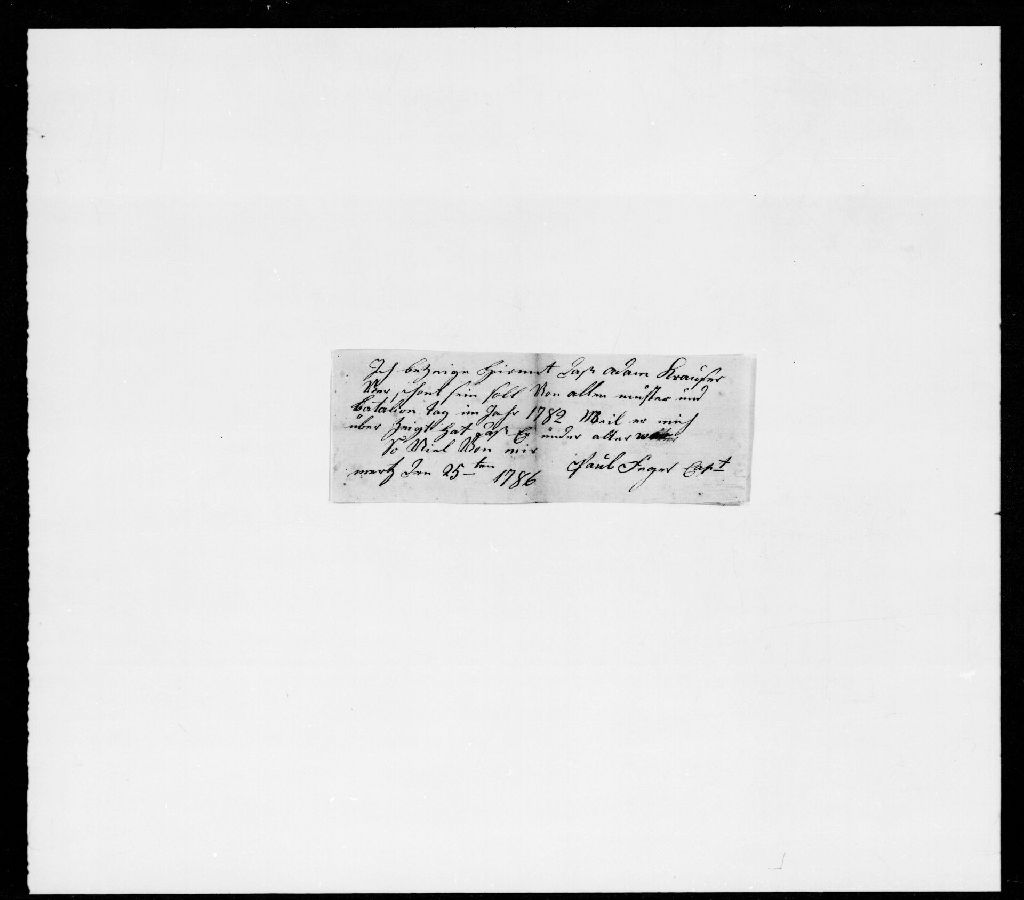 Ich bezeige hiermit daß adam Krauser
Ver schont sein soll Von allen muster und
batalion tag im Jahr 1782 Weil er mich
über Zeigt hat daß Er under alter war
So Viel Von mir
mertz den 25ten 1786 Paul Feger Capt